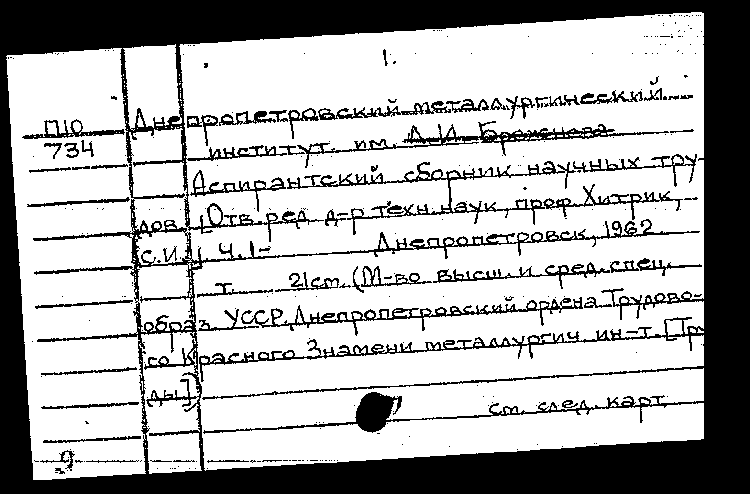 1.
П10 Днепропетровский металлургический
734 институт им.
Аспирантский сборник научных тру-
дов. [Отв. ред. д-р техн. наук, проф. Хитрик,
С.И.] Ч.1- Днепропетровск, 1962.
т. 21см. (М-во высш. и сред. спец.
образ. УССР. Днепропетровский ордена Трудово-
го Красного Знамени металлургич. ин-т. [Тру
ды])
см. след. карт.
9